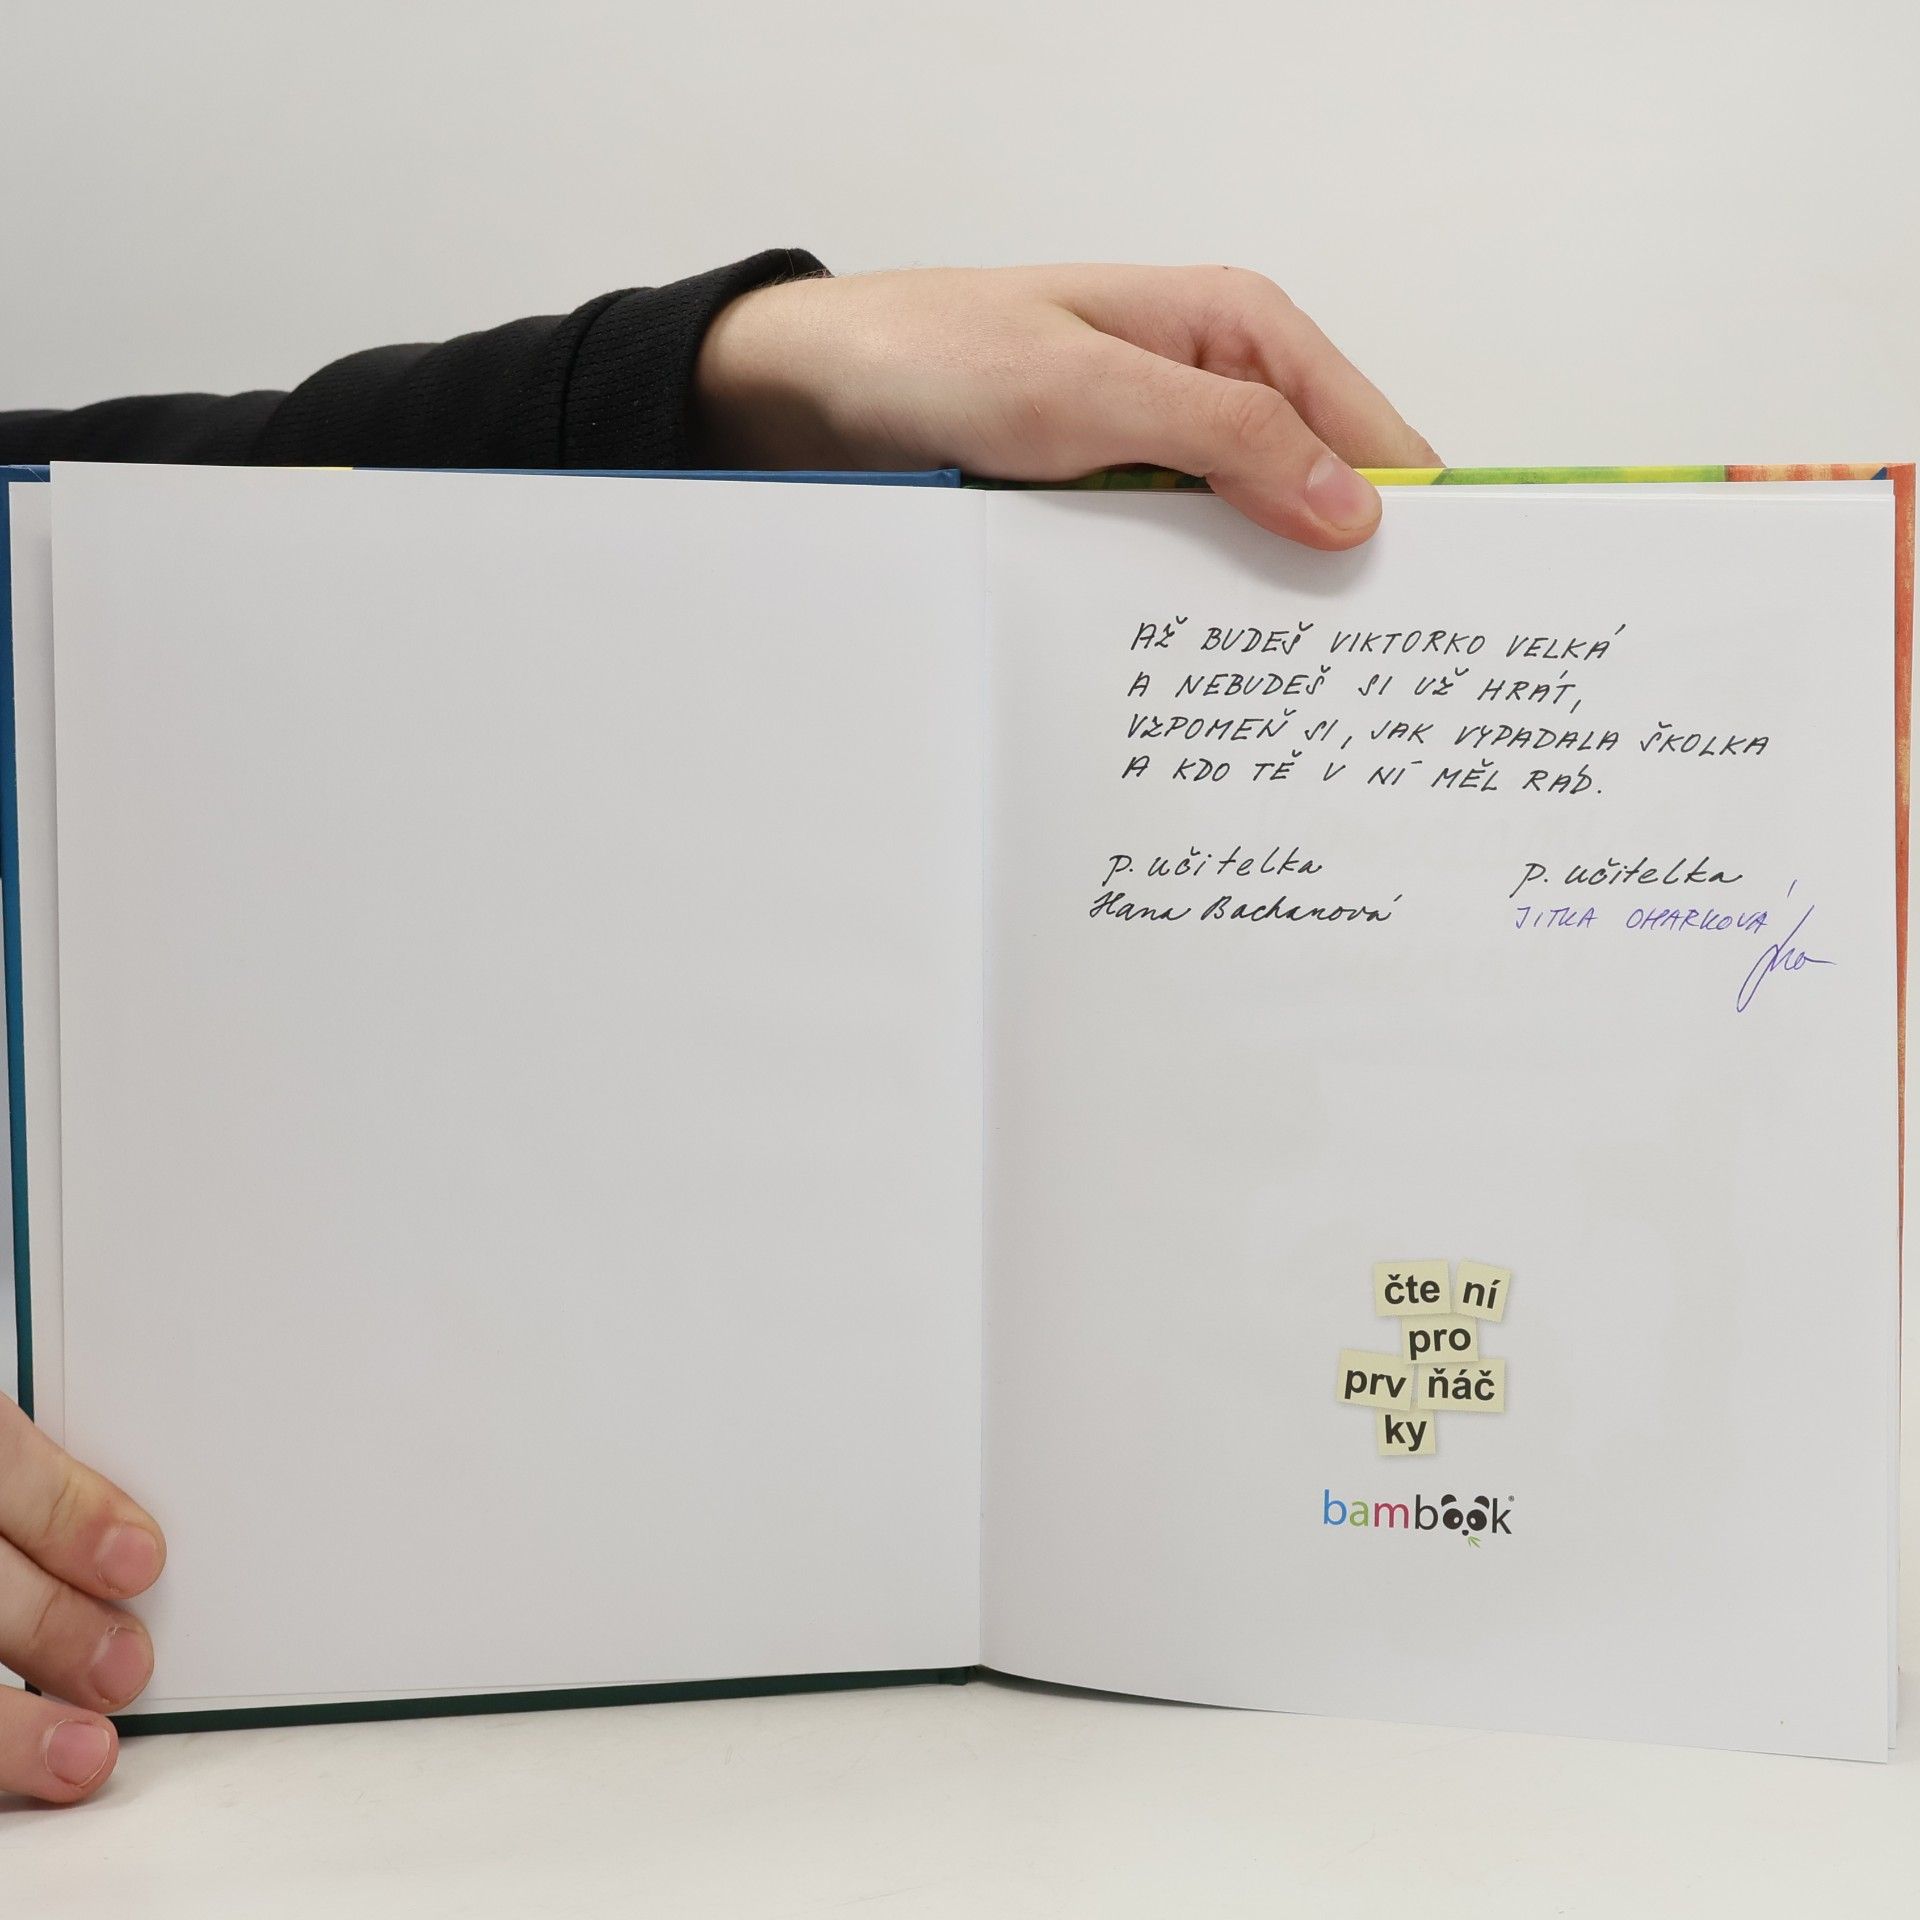 AŽ BUDEŠ VIKTORKO VELKÁ
A NEBUDEŠ SI UŽ HRÁT,
VZPOMEŇ SI, JAK VYPADALA ŠKOLKA
A KDO TĚ V NÍ MĚL RÁD.
p. učitelka
Hana Bachanová
p. učitelka
JITKA OHARKOVÁ
čte ní
pro
prv ňáč
ky
bambook®